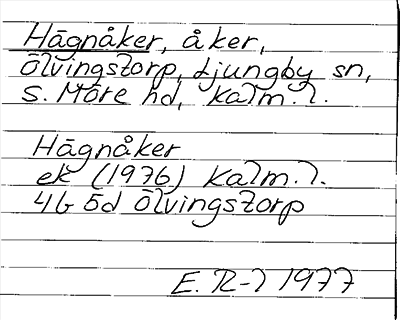 Hägnåker, åker,
Ölvingstorp, Ljungby sn,
S. Möre hd, Kalm. l.
Hägnåker
ek (1976) Kalm. l.
4G 5d Ölvingstorp
E. R-l 1977